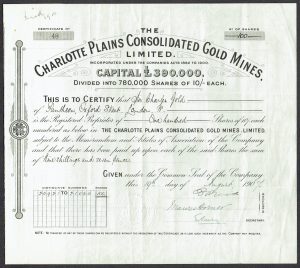 CERTIFICATE Nº
48
Nº OF SHARES
100
THE
CHARLOTTE PLAINS CONSOLIDATED GOLD MINES,
LIMITED.
INCORPORATED UNDER THE COMPANIES ACTS 1862 TO 1900.
CAPITAL £390,000.
DIVIDED INTO 780,000 SHARES OF 10/- EACH.
THIS IS TO CERTIFY that Sir Charles Gold
of Pantheon Oxford Street London W.
is the Registered Proprietor of One hundred Shares of 10/- each
numbered as below in THE CHARLOTTE PLAINS CONSOLIDATED GOLD MINES, LIMITED
subject to the Memorandum and Articles of Association of the Company
and that there has been paid up upon each of the said Shares the sum
of Five shillings and seven pence
GIVEN under the Common Seal of the Company
this 19th day of August 190
SECRETARY.